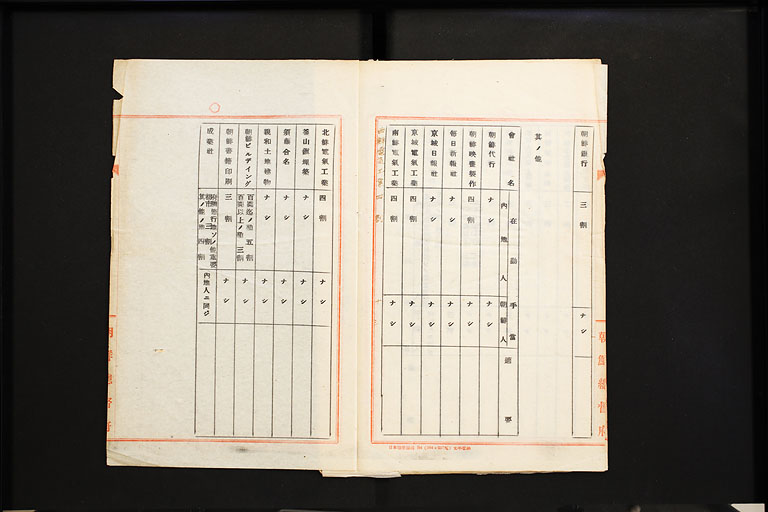 朝鮮銀行 三割 ナシ
其ノ他
會社名 在勤手當 內地人 朝鮮人 適要
朝鮮代行 ナシ ナシ
朝鮮映畫製作 四割 ナシ
每日新報社 ナシ ナシ
京城日報社 ナシ ナシ
京城電氣工業 四割 ナシ
南鮮電氣工業 四割 ナシ
北鮮電氣工業 四割 ナシ
釜山 ナシ ナシ
合名 ナシ ナシ
親和土地建物 ナシ ナシ
朝鮮ビルデイング 百圓迄ノ者五割 百圓以上ノ者三割 ナシ
朝鮮書籍印刷 三割 ナシ
成業社 三割 其ノ他ノ地四割 內地人ニ同ジ
朝鮮總督府